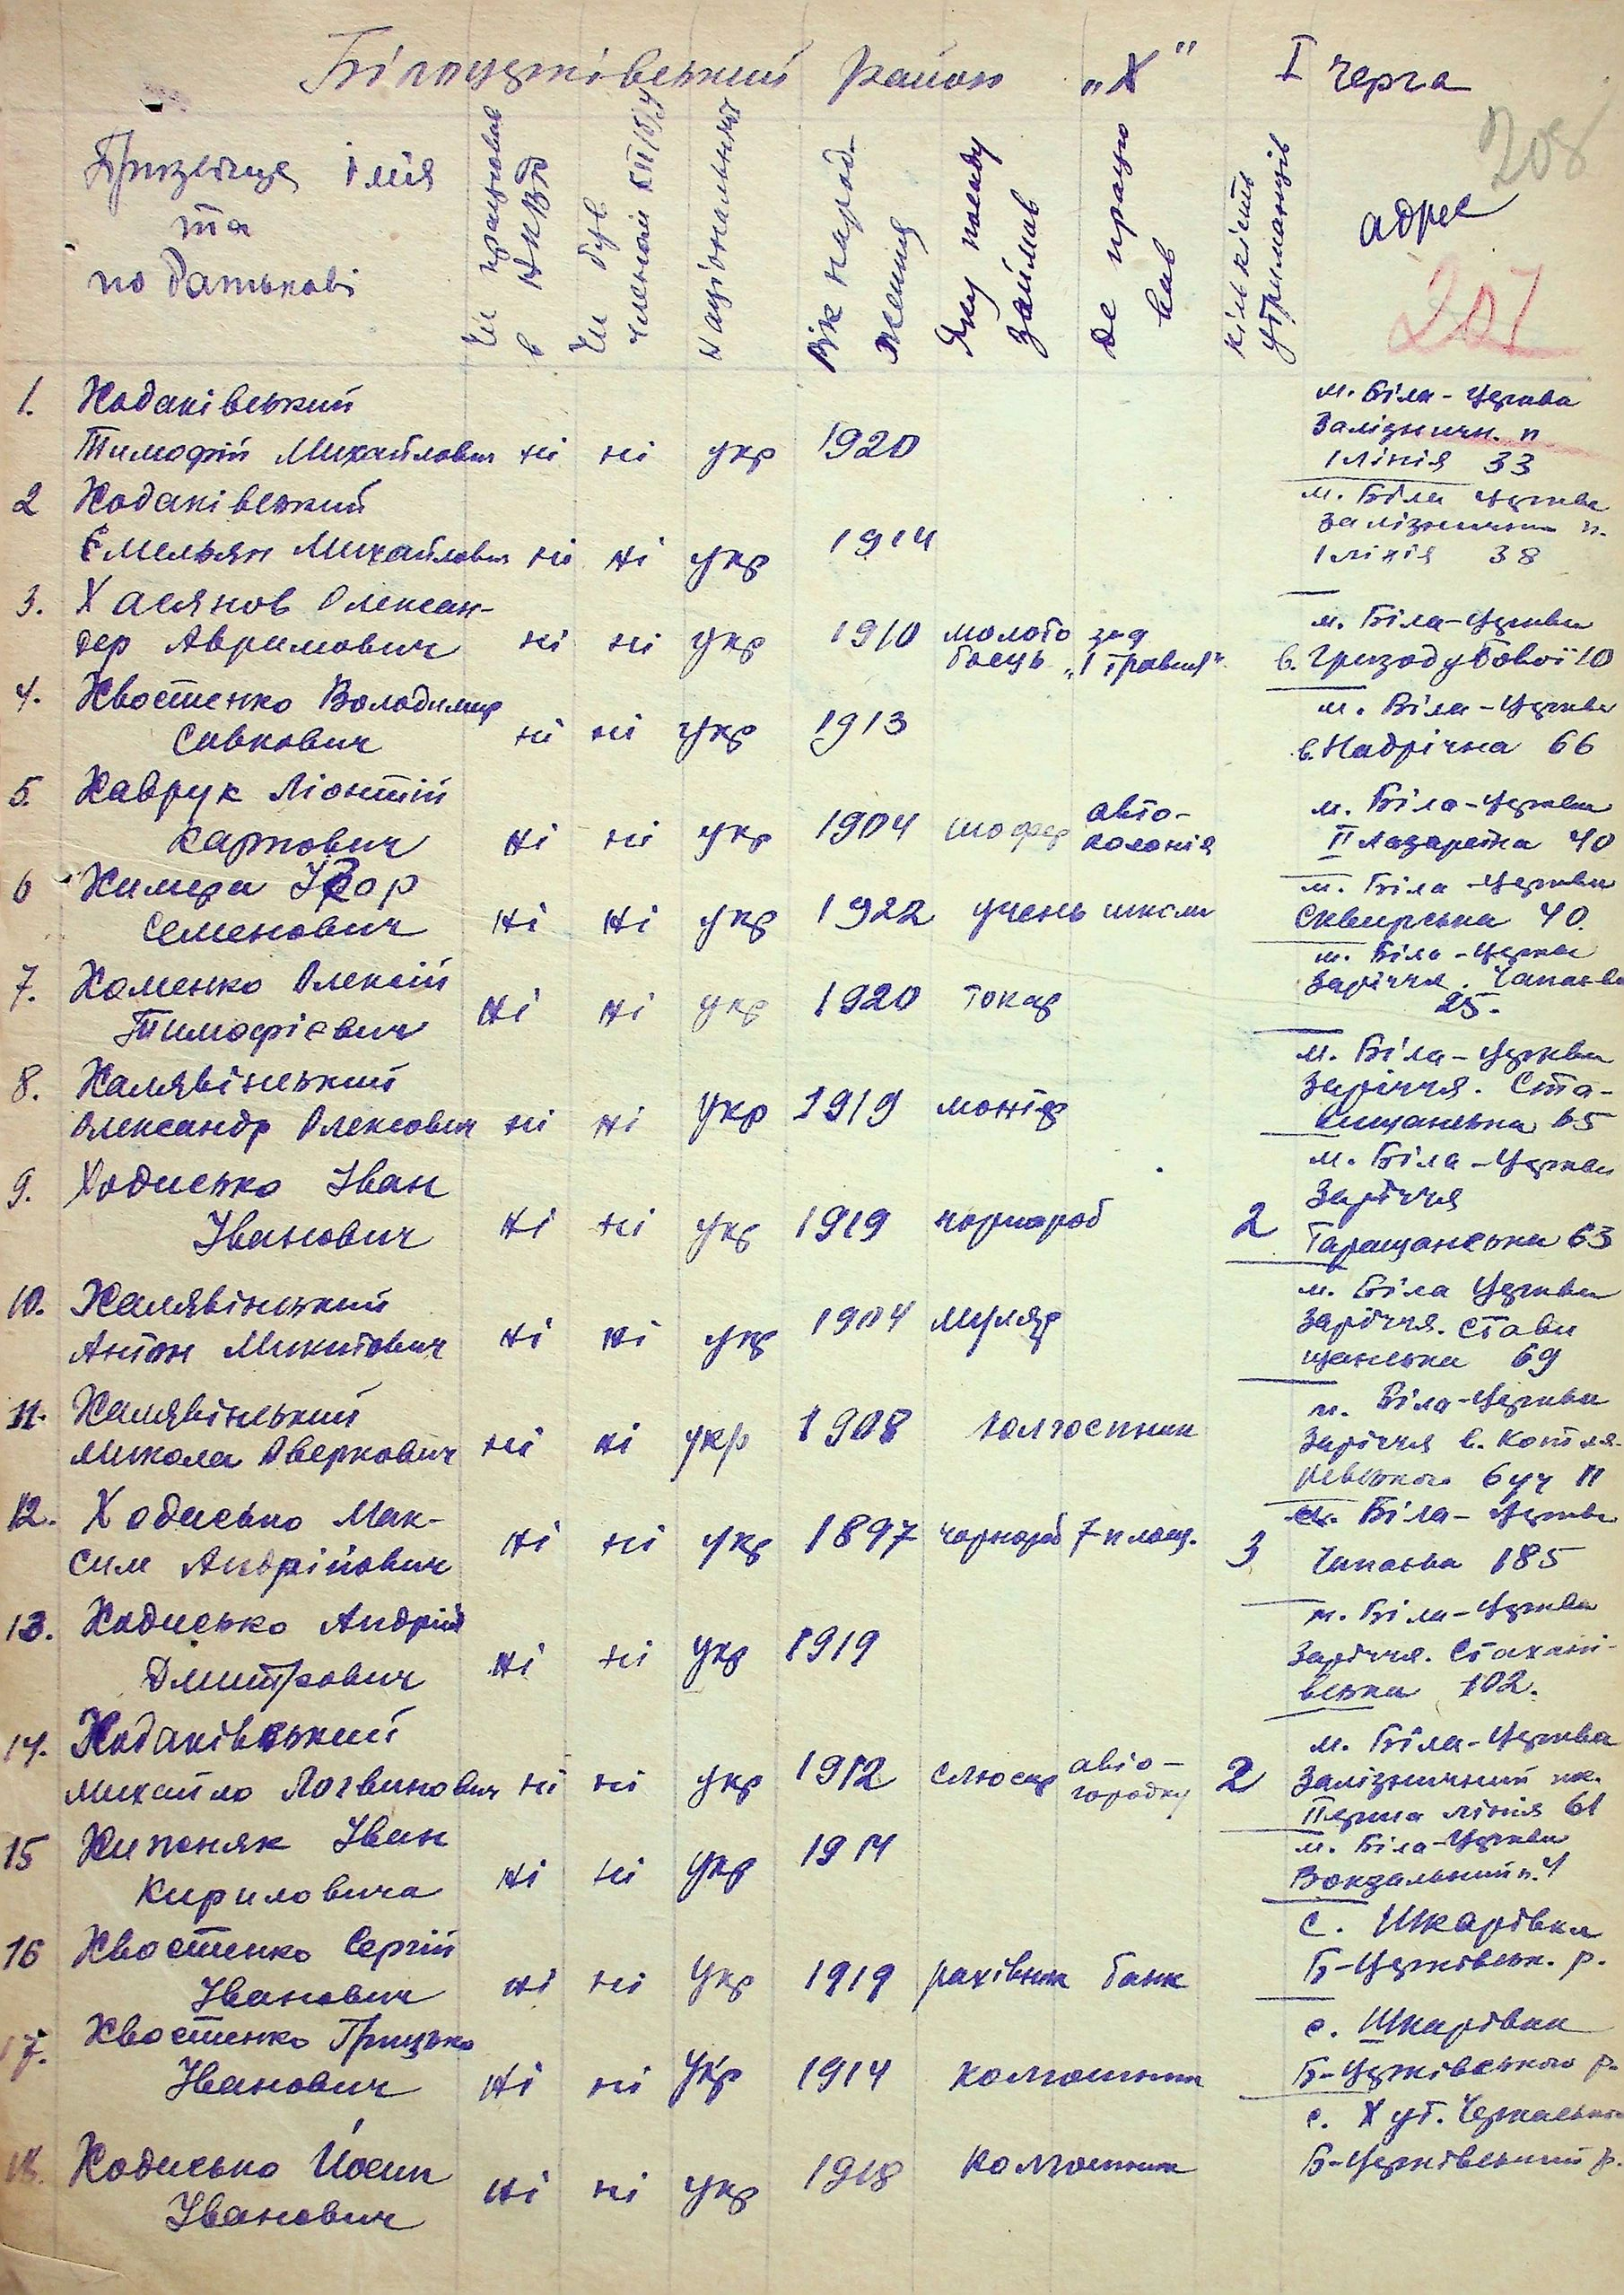 Білоцерківський район „Х" І черга
208
Прізвище Імя
та
по батькові
Чи працював
в НКВД
Чи був
членом КП/б/У
Національність
Рік народ-
ження
Яку посаду
займав
Де працю
вав
Кількість
утриманців
адрес
207
1. Ходаківський м. Біла-Церква
Залізничн. п
Тимофій Михайлович ні ні укр 1920
1 лінія 33
2 Ходаківський м. Біла Церква
Залізничний п.
Ємельян Михайлович ні ні укр 1914 1 лінія 38
3. Хасянов Олексан- м. Біла-Церква
дер Аврамович ні ні укр 1910 молото боєць зад „1 травня" в. Гризодубової 10
4. Хвостенко Володимир м. Біла-Церква
Савкович ні ні укр 1913 в. Надрічна 66
5. Хаврук Ліонтій м. Біла-Церква
Карпович ні ні укр 1904 шофер авто-колонія ІІ Лазаретна 40
6 Химера Ігор м. Біла-Церква
Семенович ні ні укр 1922 учень школи Сквирська 40.
7. Хоменко Олексій м. Біла-Церква
Заріччя. Чапаєва
Тимофієвич ні ні укр 1920 токар 25.
8. Халявінський м. Біла-Церква
Заріччя. Ста-
Олександр Олексович ні ні укр 1919 монтер вищанська 65
9. Ходисько Іван м. Біла-Церква
Заріччя
Іванович ні ні укр 1919 чорнороб 2 Таращанська 63
10. Халявінський м. Біла Церква
Заріччя. Стави
Антон Микитович ні ні укр 1904 муляр щанська 69
11. Халявінський м. Біла-Церква
Заріччя в. Котля-
Микола Оверкович ні ні укр 1908 колгоспник ревського 6
12. Ходисько Мак- м. Біла-Церква
сим Андрійович ні ні укр 1897 чорнороб 7 площ. 3 Чапаєва 185
13. Ходисько Андрій м. Біла-Церква
Заріччя. Стахані-
Дмитрович ні ні укр 1919 вська 102.
14. Ходаківський м. Біла-Церква
Залізничний
Михайло Логвинович ні ні укр 1912 слюсар авто-городку 2 Перша лінія 61
15 Хипоняк Іван м. Біла-Церква
Кириловича ні ні укр 1914 Вокзальний п. 4
16 Хвостенко Сергій с. Шкарівка
Іванович ні ні укр 1919 рахівник банк Б-Церківськ. р.
17. Хвостенко Грицько с. Шкарівка
Іванович ні ні укр 1914 колгоспник Б-Церківського р.
с. Хут. Черкаський
18. Ходисько Йосип Б-Церківський р.
Іванович ні ні укр 1918 колгоспник